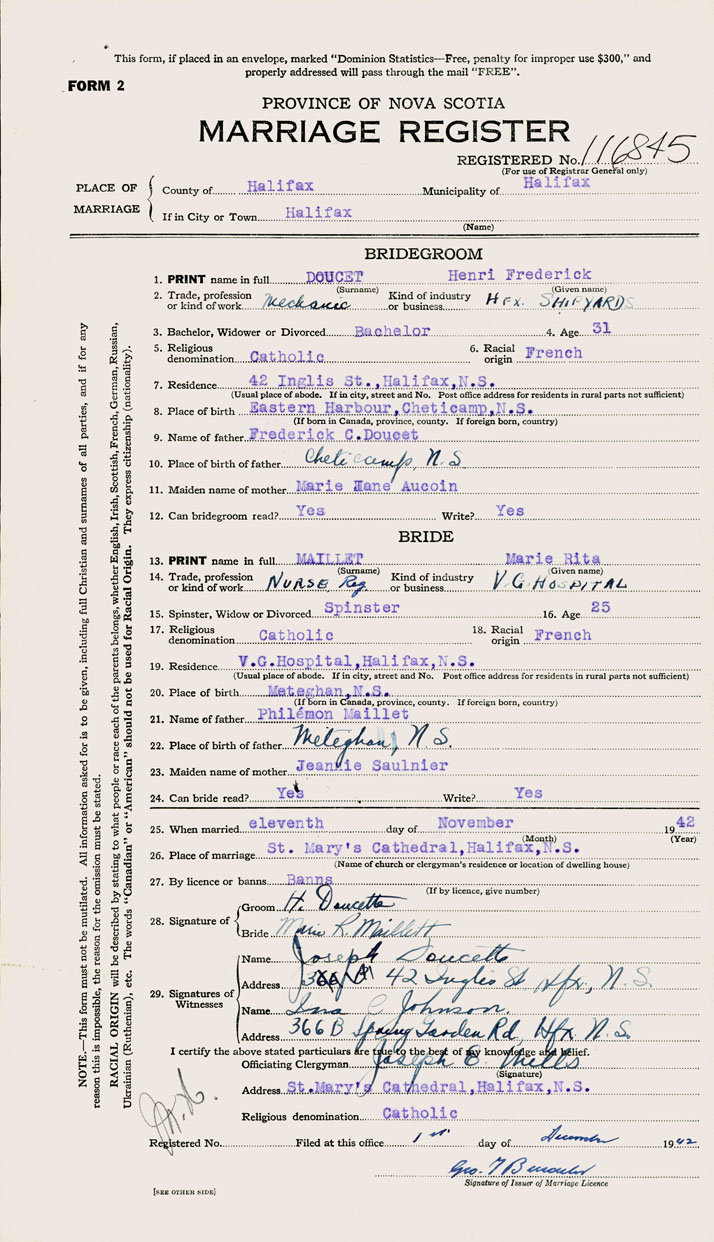 This form, if placed in an envelope, marked "Dominion Statistics—Free, penalty for improper use $300," and
properly addressed will pass through the mail "FREE".
FORM 2
PROVINCE OF NOVA SCOTIA
MARRIAGE REGISTER
REGISTERED No. 116845
(For use of Registrar General only)
PLACE OF MARRIAGE
County of Halifax Municipality of Halifax
If in City or Town Halifax
(Name)
BRIDEGROOM
1. PRINT name in full DOUCET Henri Frederick
(Surname) (Given name)
2. Trade, profession or kind of work Mechanic Kind of industry or business Hfx. SHIPYARDS
3. Bachelor, Widower or Divorced Bachelor 4. Age 31
5. Religious denomination Catholic 6. Racial origin French
7. Residence 42 Inglis St., Halifax, N.S.
(Usual place of abode. If in city, street and No. Post office address for residents in rural parts not sufficient)
8. Place of birth Eastern Harbour, Cheticamp, N.S.
(If born in Canada, province, county. If foreign born, country)
9. Name of father Frederick C. Doucet
10. Place of birth of father Cheticamp, N.S
11. Maiden name of mother Marie Jane Aucoin
12. Can bridegroom read? Yes Write? Yes
BRIDE
13. PRINT name in full MAILLET Marie Rita
(Surname) (Given name)
14. Trade, profession or kind of work NURSE Reg Kind of industry or business V.G. HOSPITAL
15. Spinster, Widow or Divorced Spinster 16. Age 25
17. Religious denomination Catholic 18. Racial origin French
19. Residence V.G. Hospital, Halifax, N.S.
(Usual place of abode. If in city, street and No. Post office address for residents in rural parts not sufficient)
20. Place of birth Meteghan, N.S.
(If born in Canada, province, county. If foreign born, country)
21. Name of father Philémon Maillet
22. Place of birth of father Meteghan, N.S.
23. Maiden name of mother Jeannie Saulnier
24. Can bride read? Yes Write? Yes
25. When married eleventh day of November 1942
(Month) (Year)
26. Place of marriage St. Mary's Cathedral, Halifax, N.S.
(Name of church or clergyman's residence or location of dwelling house)
27. By licence or banns Banns
(If by licence, give number)
28. Signature of
Groom H. Doucette
Bride Marie R. Maillett
29. Signatures of Witnesses
Name Joseph Doucette
Address 42 Inglis St Hfx, N.S.
Name Ina C Johnson.
Address 366B Spring Garden Rd, Hfx N.S.
I certify the above stated particulars are true to the best of my knowledge and belief.
Officiating Clergyman Joseph E. Mills
(Signature)
Address St. Mary's Cathedral, Halifax, N.S.
Religious denomination Catholic
Registered No. Filed at this office 1st day of December 1942
Signature of Issuer of Marriage Licence
[SEE OTHER SIDE]
NOTE.—This form must not be mutilated. All information asked for is to be given, including full Christian and surnames of all parties, and if for any
reason this is impossible, the reason for the omission must be stated.
RACIAL ORIGIN will be described by stating to what people or race each of the parents belongs, whether English, Irish, Scottish, French, German, Russian,
Ukrainian (Ruthenian), etc. The words "Canadian" or "American" should not be used for Racial Origin. They express citizenship (nationality).